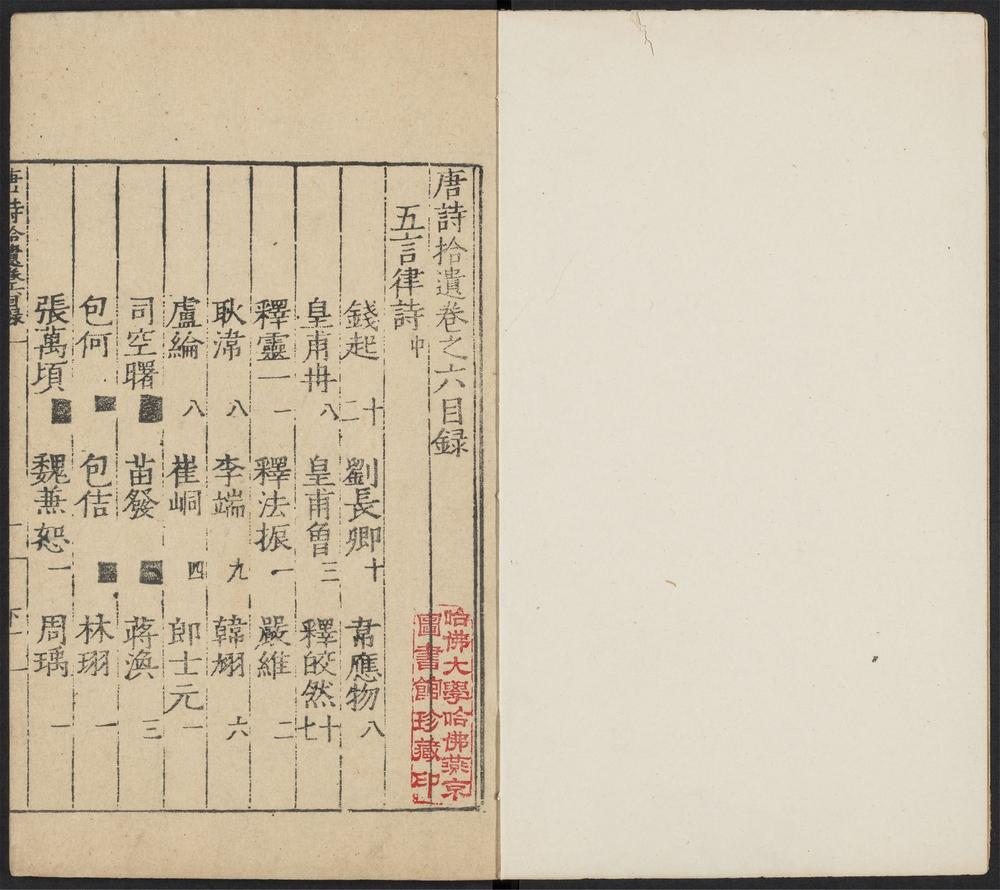 唐詩拾遺卷之六目録
五言律詩中
錢起 十二 劉長卿 十 韋應物 八
皇甫冉 八 皇甫曾 三 釋皎然 十七
釋靈一 一 釋法振 一 嚴維 二
耿湋 八 李端 九 韓翃 六
盧綸 八 崔峒 四 郎士元 一
司空曙 ■ 苗發 ■ 蔣渙 三
包何 ■ 包佶 ■ 林珝 一
張萬頃 ■ 魏兼恕 一 周瑀 一
唐詩拾遺卷六目録 一
哈佛大學哈佛燕京
圖書館珍藏印